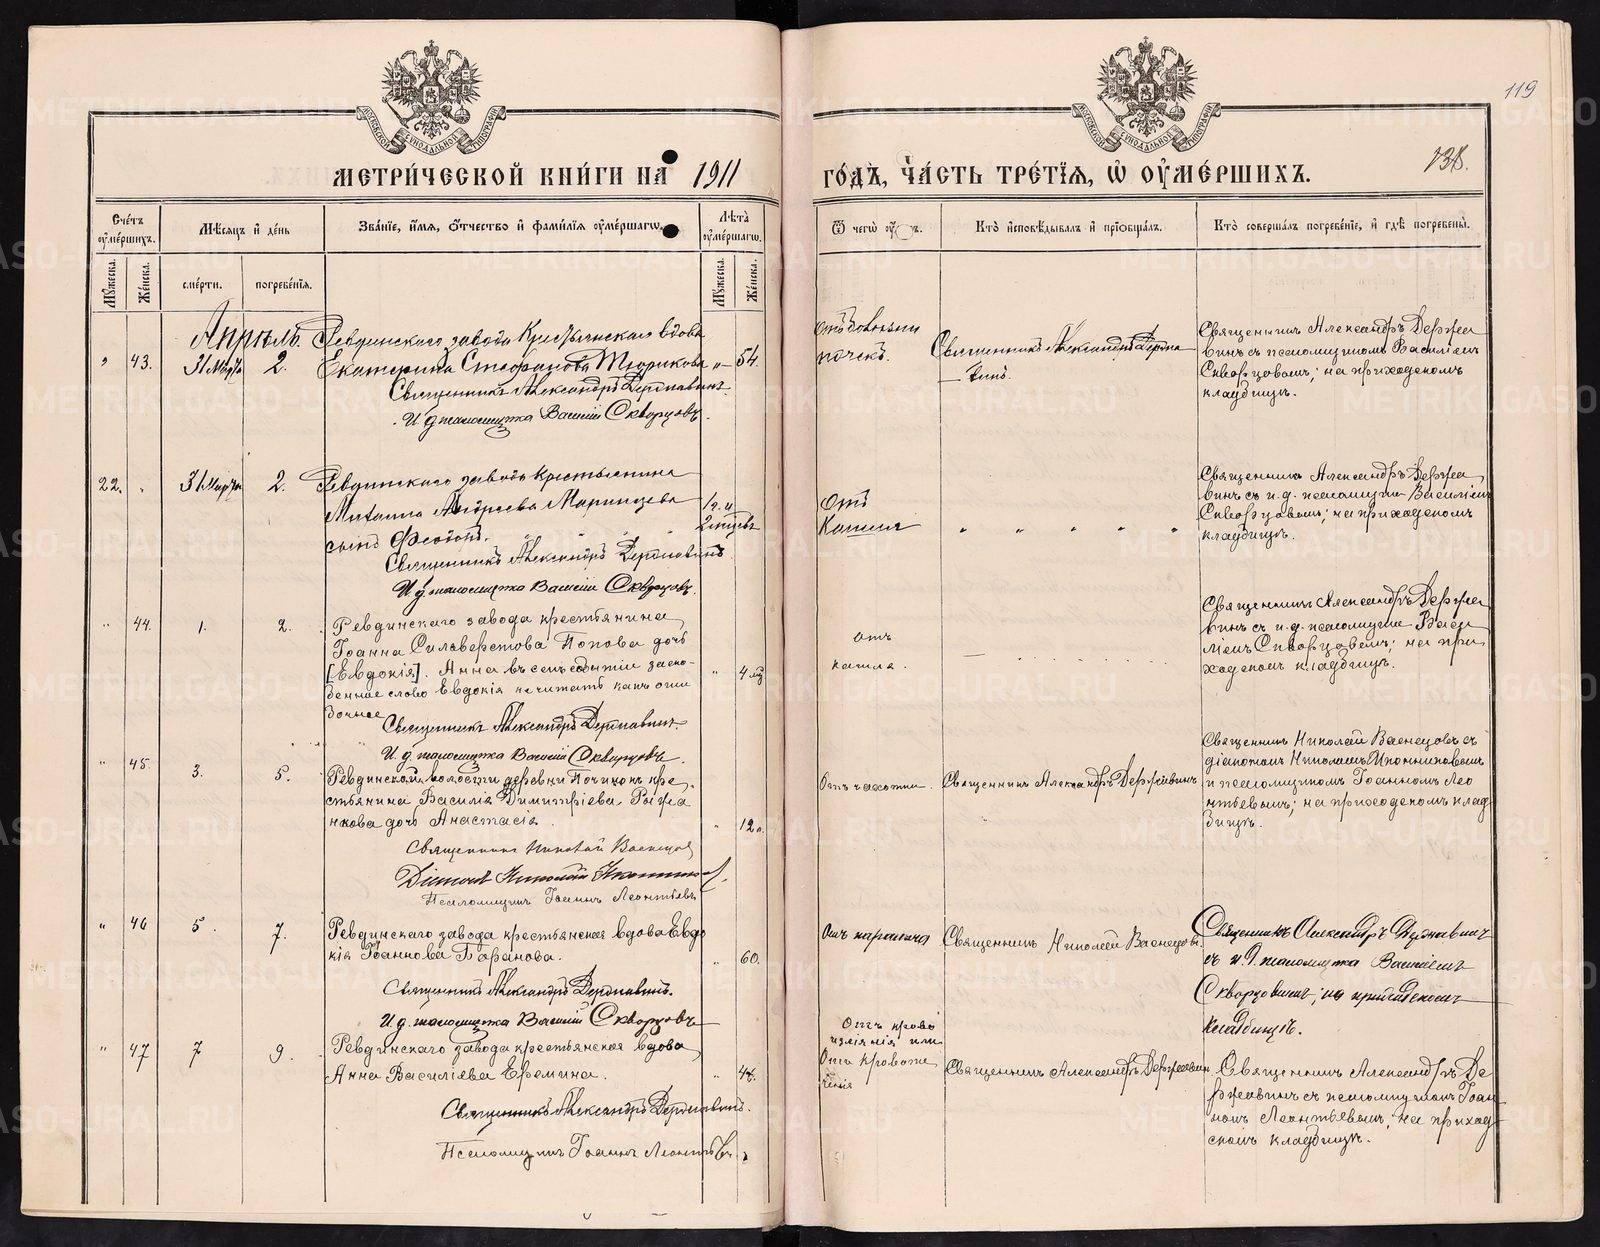 119
138.
МЕТРИ́ЧЕСКОЙ КНИ́ГИ НА 1911
ГО́ДЪ, ЧА́СТЬ ТРЕ́ТІѦ, Ѡ ОУМЕ́РШИХЪ.
МОСКОВСКОЙ СѴНОДАЛЬНОЙ ТИПОГРАФІИ
МОСКОВСКОЙ СѴНОДАЛЬНОЙ ТИПОГРАФІИ
Сче́тъ оуме́ршихъ.
Мꙋ́жеска.
Же́нска.
Мѣ́сѧцъ и҆ де́нь
сме́рти.
погребе́нїѧ.
Зва́нїе, и҆́мѧ, ѻ҆́тчество и҆ фами́лїѧ оуме́ршагѡ.
Лѣ́та оуме́ршагѡ.
Мꙋ́жеска.
Же́нска.
Ѿ чегѡ̀
Кто̀ и҆сповѣ́дывалъ и҆ прїѡбща́лъ.
Кто̀ соверша́лъ погребе́нїе, и҆ гдѣ̀ погребены̀.
Апрѣль.
" 43. 31 Марта 2.
Ревдинскаго завода Крестьянская вдова
Екатерина Стефанова Тюрикова "– 54.
Священникъ Александръ Державинъ.
И д. псаломщика Василій Скворцовъ.
Отъ болѣзни
почекъ.
Священникъ Александръ Держа
– винъ.
Священникъ Александръ Держа
винъ съ псаломщикомъ Василіемъ
Скворцовымъ; на приходскомъ
кладбищѣ.
22. " 31 Марта 2.
Ревдинскаго завода крестьянина
Михаила Андреева Маринцева
сынъ Ѳеодотъ.
1 г. и
2 мѣсяц.
Священникъ Александръ Державинъ
И д. псаломщика Василій Скворцовъ.
Отъ
Кашля " " " " "
Священникъ Александръ Держа
винъ съ и. д. псаломщика Василіемъ
Скворцовымъ; на приходскомъ
кладбищѣ.
" 44. 1. 2.
Ревдинскаго завода крестьянина
Іоанна Сильверстова Попова дочь
[Евдокія]. Анна въ семъ событіи заско-
бенное слово Евдокія не читать какъ оши
бочное " 4 мѣс.
Священникъ Александръ Державинъ.
И. д. псаломщика Василій Скворцовъ.
отъ
кашля.
Священникъ Александръ Держа
винъ съ и. д. псаломщика Васи
ліемъ Скворцовымъ; на при
ходскомъ кладбищѣ.
" 45. 3. 5.
Ревдинской волости деревни Починокъ кре
стьянина Василія Димитріева Рыжа
нкова дочь Анастасія. " 12 л.
Священникъ Николай Васнецов
Діаконъ Николай Иконников.
Псаломщикъ Іоаннъ Леонтьевъ
Отъ чахотки.
Священникъ Александръ Державинъ
Священникъ Николай Васнецовъ съ
діакономъ Николаемъ Иконниковымъ
и псаломщикомъ Іоанномъ Лео
нтьевымъ; на приходскомъ клад
бищѣ.
" 46 5. 7.
Ревдинскаго завода крестьянская вдова Евдо
кія Іоаннова Баранова. " 60.
Священникъ Александръ Державинъ.
И. д. псаломщика Василій Скворцовъ
Отъ паралича
Священникъ Николай Васнецовъ.
Священникъ Александръ Державинъ
съ и. д. псаломщика Василіемъ
Скворцовымъ; на приходскомъ
кладбищѣ.
" 47 7 9.
Ревдинскаго завода крестьянская вдова
Анна Василіева Еремина. " 48.
Священникъ Александръ Державинъ.
Псаломщикъ Іоаннъ Леонтьевъ.
Отъ крово
изліянія или
Отъ кровоте
ченія
Священникъ Александръ Державин
Священникъ Александръ Де
ржавинъ съ псаломщикомъ Іоан
номъ Леонтьевымъ, на приход
скомъ кладбищѣ.
METRIKI.GASO-URAL.RU